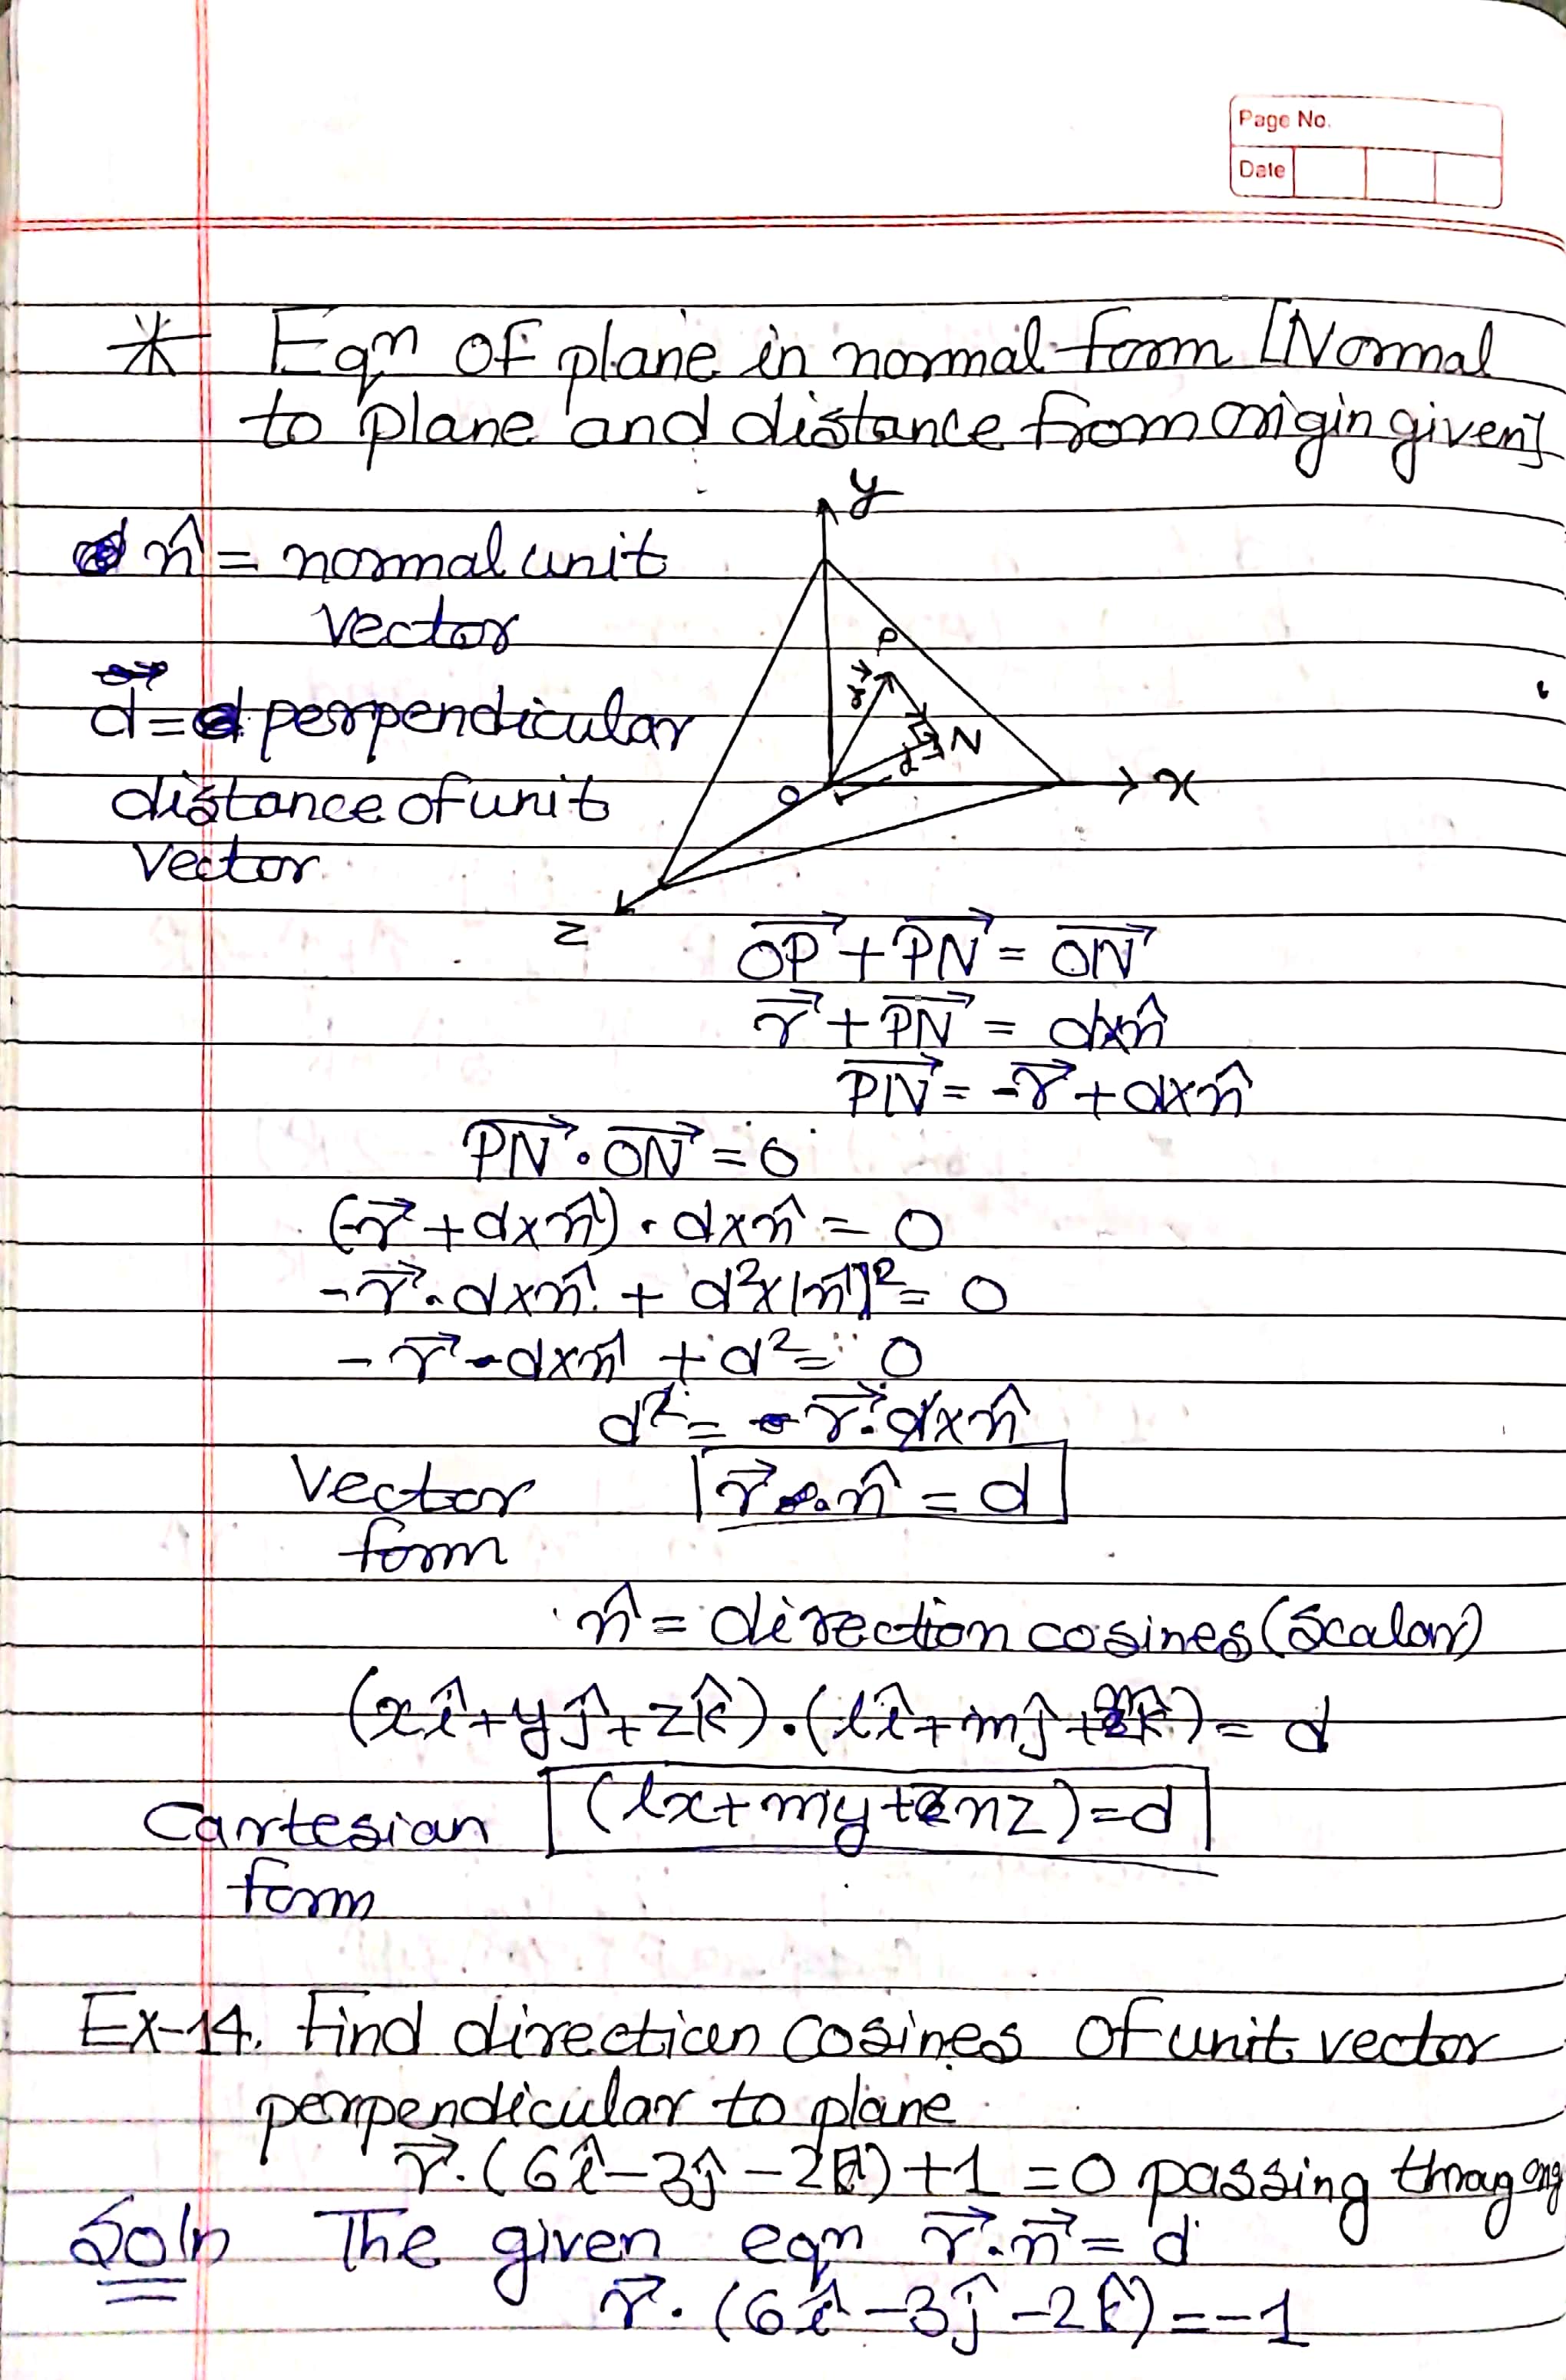 Page No.
Date
* Eqn OF plane in normal form [Normal
to plane and distance from origin given]
n̂ = normal unit
vector
d⃗ = perpendicular
distance of unit
vector
y
P
r⃗
N
d
O
x
z
OP⃗ + PN⃗ = ON⃗
r⃗ + PN⃗ = d×n̂
PN⃗ = -r⃗ + d×n̂
PN⃗ · ON⃗ = 0
(-r⃗ + d×n̂) · d×n̂ = 0
-r⃗ · d×n̂ + d²×|n̂|² = 0
-r⃗ · d×n̂ + d² = 0
d² = r⃗ · d×n̂
Vector r⃗ · n̂ = d
form
n̂ = direction cosines (Scalar)
(xî + yĵ + zk̂) · (lî + mĵ + nk̂) = d
Cartesian (lx + my + nz) = d
form
Ex-14. Find direction cosines of unit vector
perpendicular to plane
r⃗ · (6î - 3ĵ - 2k̂) + 1 = 0 passing throug
Soln The given eqn r⃗ · n⃗ = d
r⃗ · (6î - 3ĵ - 2k̂) = -1